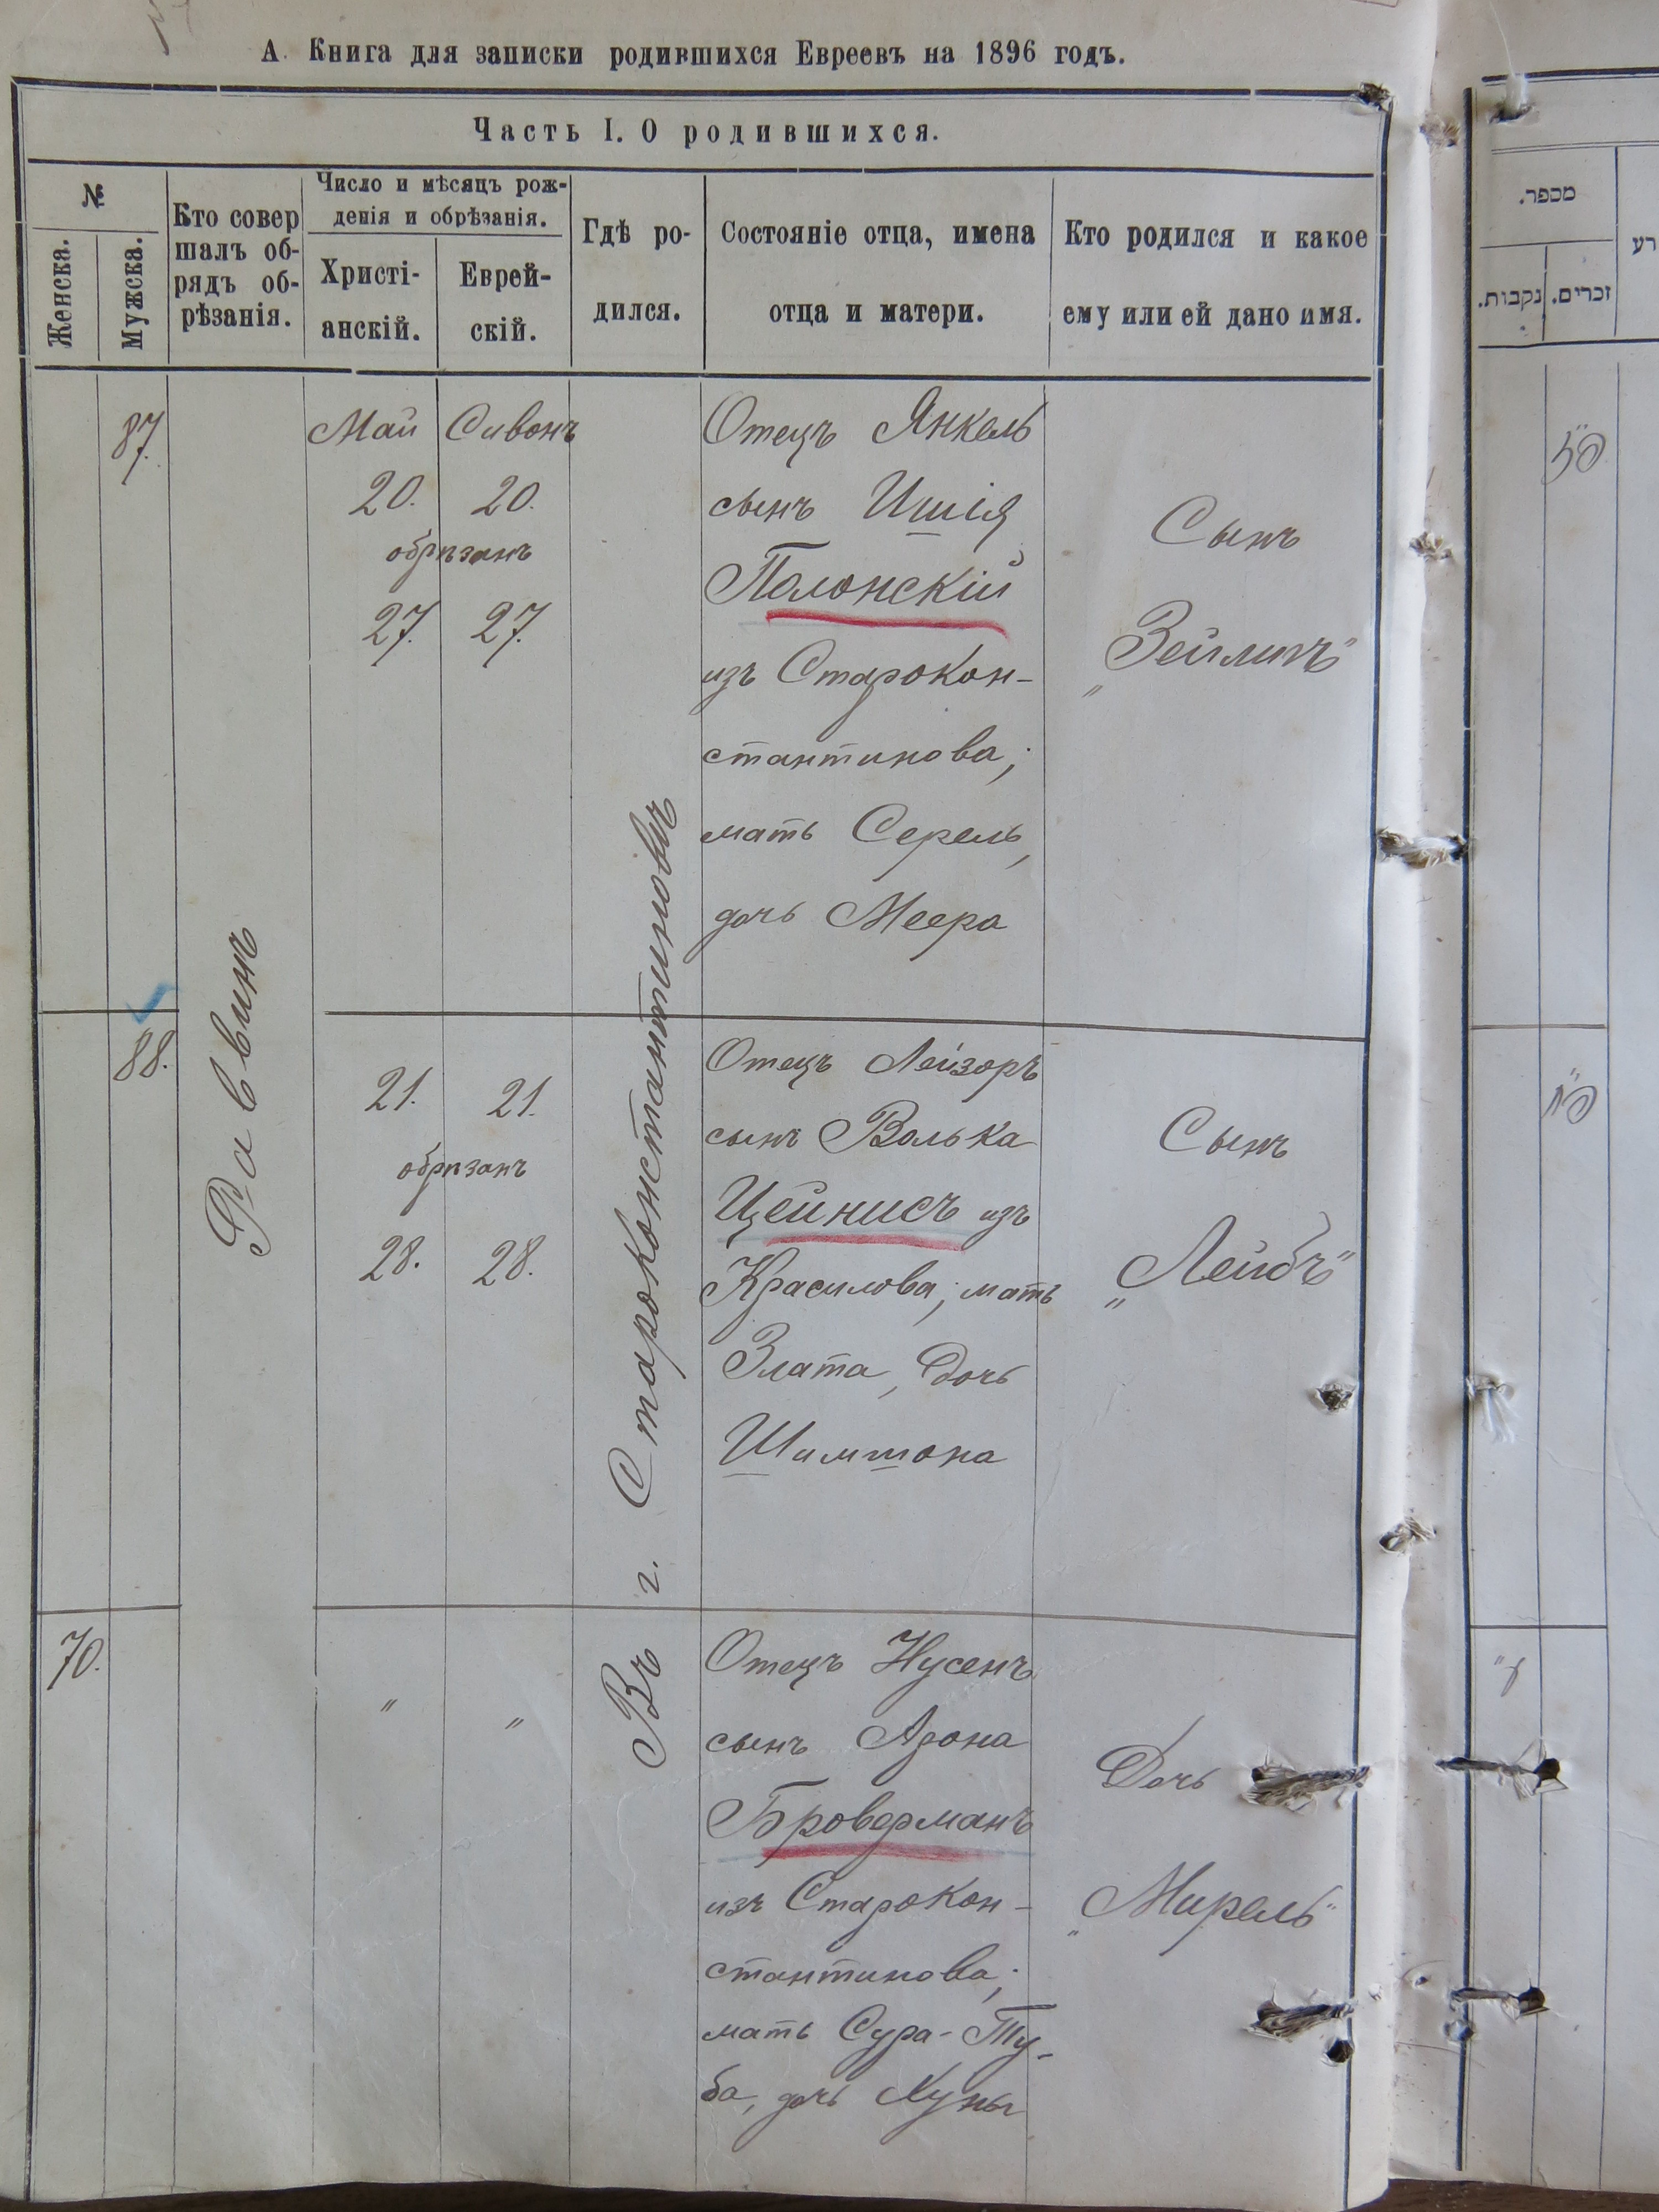 А. Книга для записки родившихся Евреевъ на 1896 годъ.
Часть I. О родившихся.
№
Женска.
Мужска.
Кто совер
шалъ об-
рядъ об-
рѣзанія.
Число и мѣсяцъ рож-
денія и обрѣзанія.
Христі-
анскій.
Еврей-
скій.
Гдѣ ро-
дился.
Состояніе отца, имена
отца и матери.
Кто родился и какое
ему или ей дано имя.
Раввинъ
Въ г. Староконстантиновѣ
87.
Май Сивонъ
20. 20.
обрѣзанъ
27. 27.
Отецъ Янкель
сынъ Ишія
Полонскій
изъ Старокон-
стантинова;
мать Серель,
дочь Меера
Сынъ
"Зейлигъ"
88.
21. 21.
обрѣзанъ
28. 28.
Отецъ Лейзоръ
сынъ Волька
Цейнисъ изъ
Красилова; мать
Злата, дочь
Шимшона
Сынъ
"Лейбъ"
70.
" "
Отецъ Нусенъ
сынъ Арона
Броверманъ
изъ Старокон-
стантинова;
мать Сура-Ту-
ба, дочь Хуны
Дочь
"Мирель"
מספר.
נקבות.
זכרים.
רע
פ״ז
פ״ח
ע״